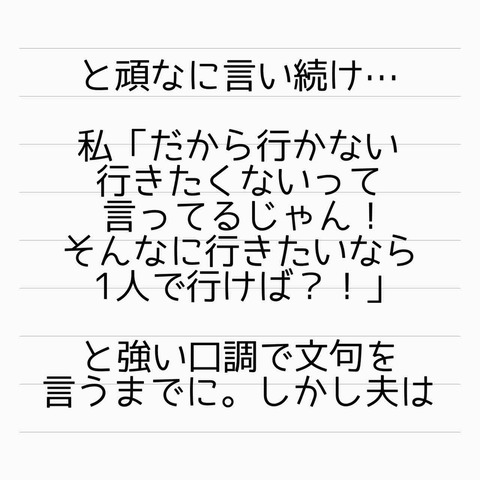 と頑なに言い続け…
私「だから行かない
行きたくないって
言ってるじゃん！
そんなに行きたいなら
1人で行けば？！」
と強い口調で文句を
言うまでに。しかし夫は